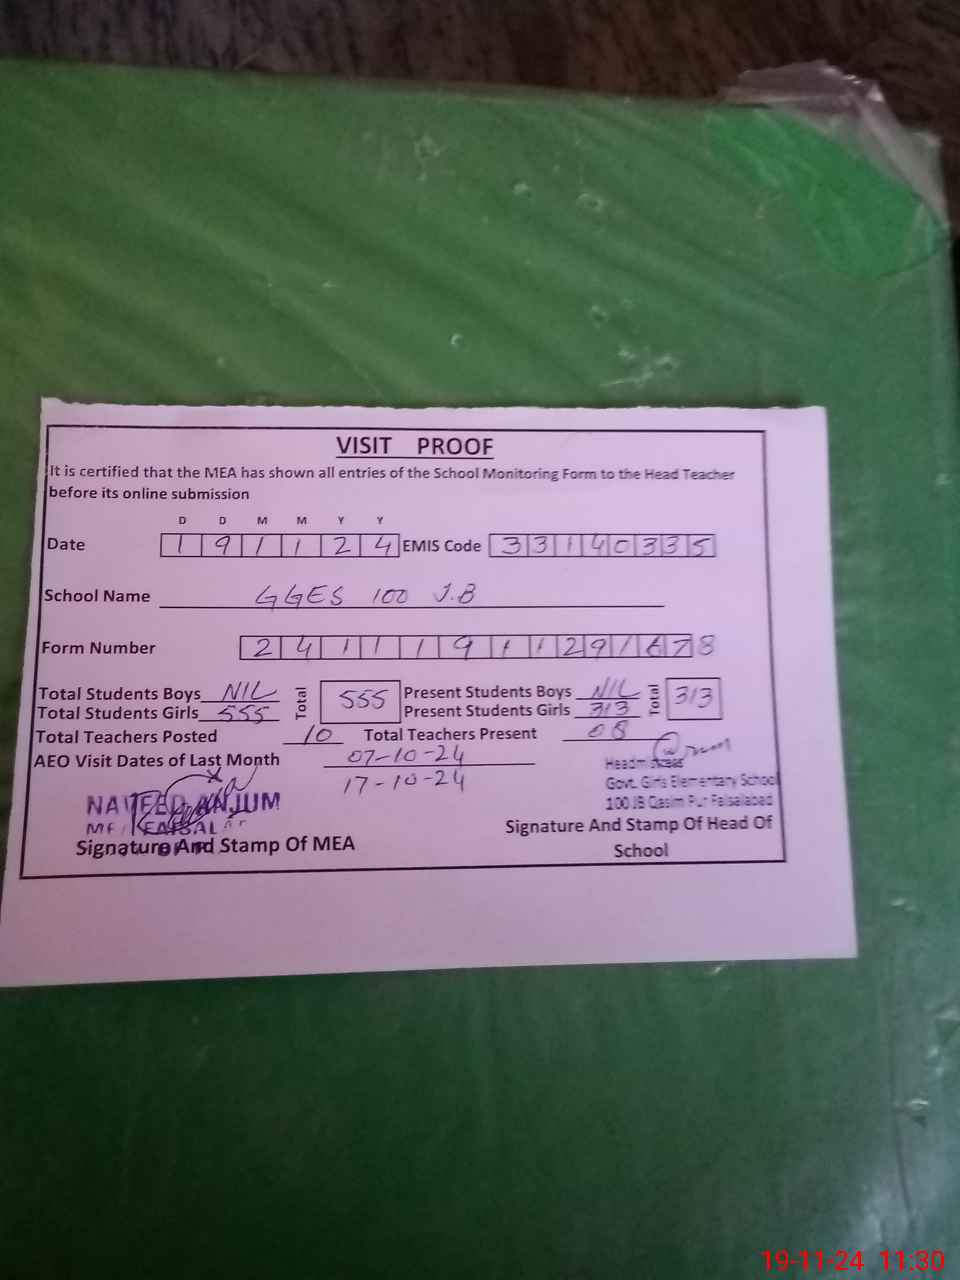 VISIT PROOF
It is certified that the MEA has shown all entries of the School Monitoring Form to the Head Teacher
before its online submission
D D M M Y Y
Date 1 9 1 1 2 4 EMIS Code 3 3 1 4 0 3 3 5
School Name GGES 100 J.B
Form Number 2 4 1 1 1 9 1 1 2 9 1 6 7 8
Total Students Boys NIL Total 555 Present Students Boys NIL Total 313
Total Students Girls 555 Present Students Girls 313
Total Teachers Posted 10 Total Teachers Present 08
AEO Visit Dates of Last Month 07-10-24
17-10-24
Headmistress
Govt. Girls Elementary School
100 JB Qasim Pur Faisalabad
NAVEED ANJUM
Signature And Stamp Of MEA
Signature And Stamp Of Head Of
School
19-11-24 11:30